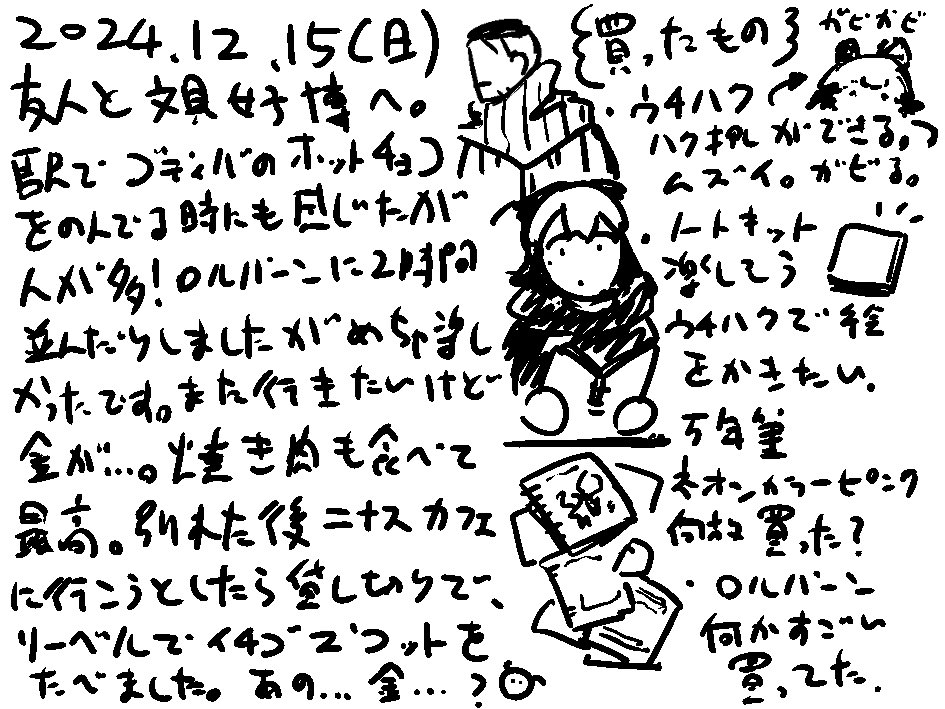 2024.12.15(日)
友人と文具女子博へ。
駅でゴディバのホットチョコ
をのんでる時にも感じたが
人が多!ロルバーンに2時間
並んだりしましたがめちゃ楽し
かったです。また行きたいけど
金が…。焼き肉も食べて
最高。別れた後ニナスカフェ
に行こうとしたら貸し切りで、
リーベルでイチゴズコットを
たべました。あの…金…?
{買ったもの}
ガビガビ
・ウチハク
ハク押しができる。
ムズイ。ガビる。
・ノートキット
楽してう
ウチハクで絵
をかきたい。
万年筆
ネオンカラーピンク
何故買った?
・ロルバーン
何かすごい
買ってた.